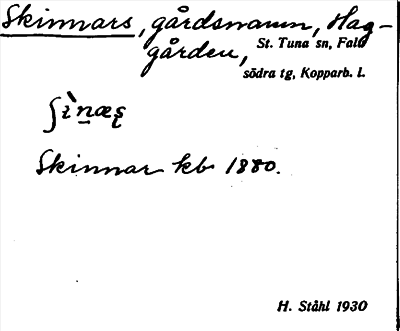 Skinnars, gårdsnamn, Hag-
gården, St. Tuna sn, Falu
södra tg, Kopparb. l.
Skinnar kb 1880.
H. Ståhl 1930